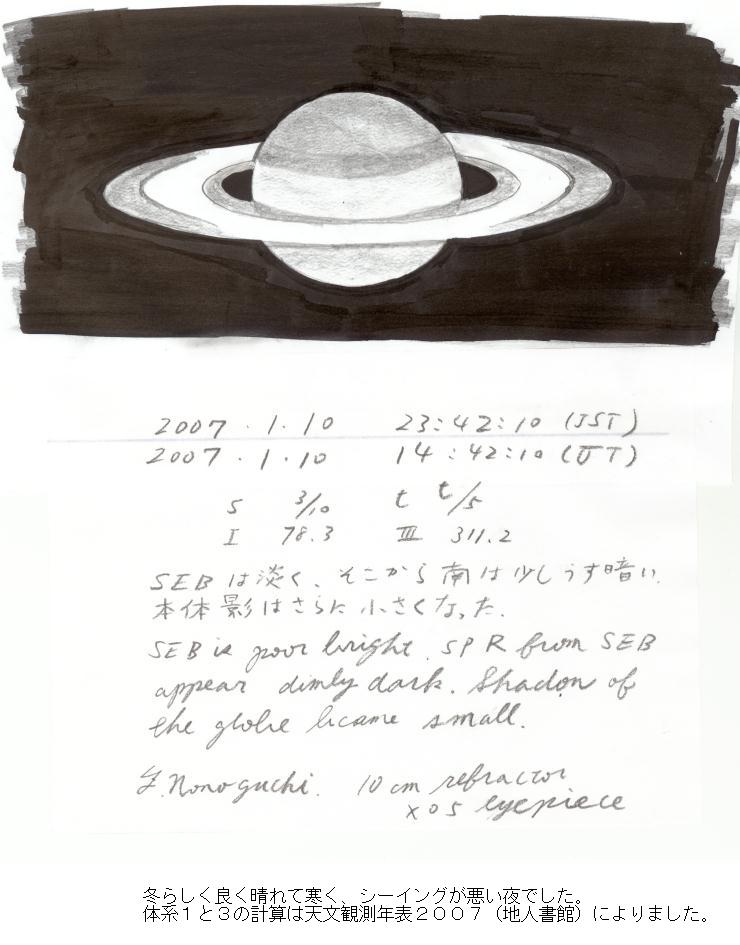 2007.1.10 23:42:10 (JST)
2007.1.10 14:42:10 (UT)
S 3/10 t t/5
I 78.3 III 311.2
SEBは淡く、そこから南は少しうす暗い.
本体影はさらに小さくなった.
SEB is poor bright. SPR from SEB
appear dimly dark. Shadon of
the globe became small.
Nonoguchi. 10cm refractor
×05 eyepiece
冬らしく良く晴れて寒く、シーイングが悪い夜でした。
体系1と3の計算は天文観測年表2007(地人書館)によりました。